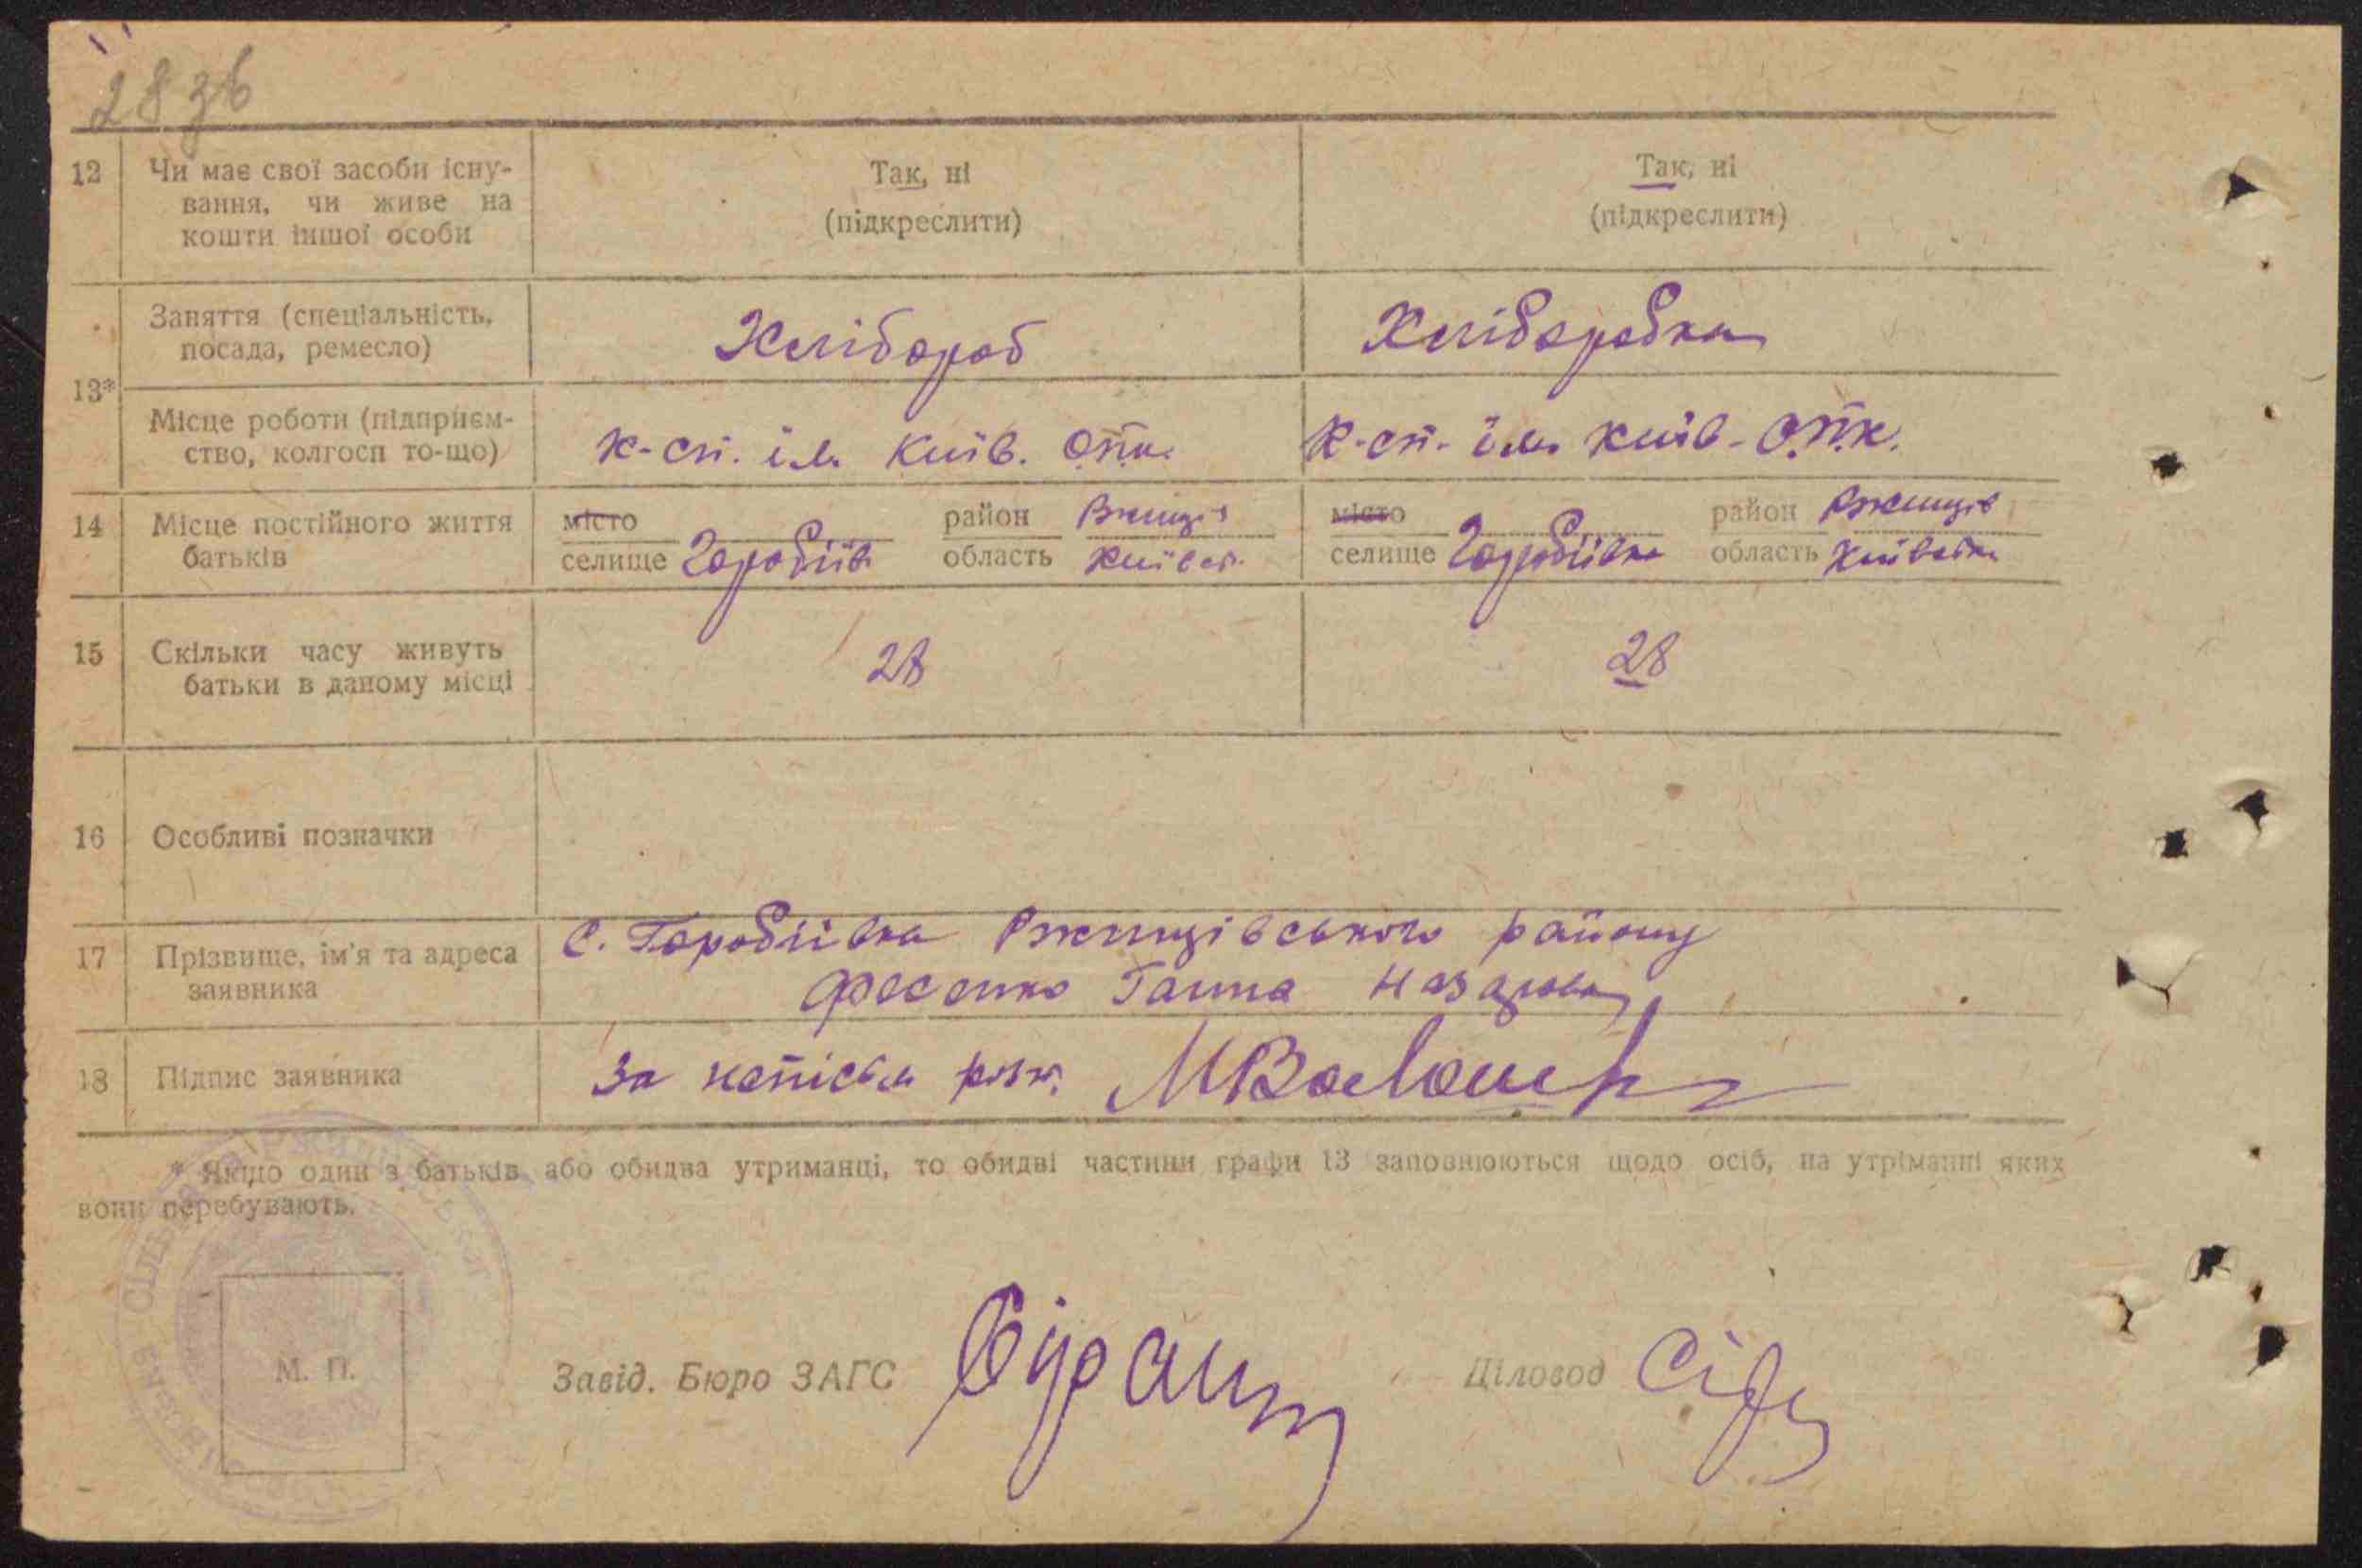 28 зв
12 Чи має свої засоби існу-
вання, чи живе на
кошти іншої особи
Так, ні
(підкреслити)
Так, ні
(підкреслити)
13*
Заняття (спеціальність,
посада, ремесло)
Хлібороб
Хліборобка
Місце роботи (підприєм-
ство, колгосп то-що)
к-сп. ім. Київ. О.П.К.
к-сп. ім. Київ. О.П.К.
14 Місце постійного життя
батьків
місто
селище Горобіїв
район Ржищів
область Київсь.
місто
селище Горобіївка
район Ржищів
область Київська
15 Скільки часу живуть
батьки в даному місці
28
28
16 Особливі позначки
17 Прізвище, ім'я та адреса
заявника
С. Горобіївка Ржищівського району
Фесенко Ганна Назарова
18 Підпис заявника
За
* Якщо один з батьків або обидва утриманці, то обидві частини графи 13 заповнюються щодо осіб, на утріманні яких
вони перебувають.
М. П.
Завід. Бюро ЗАГС
Діловод